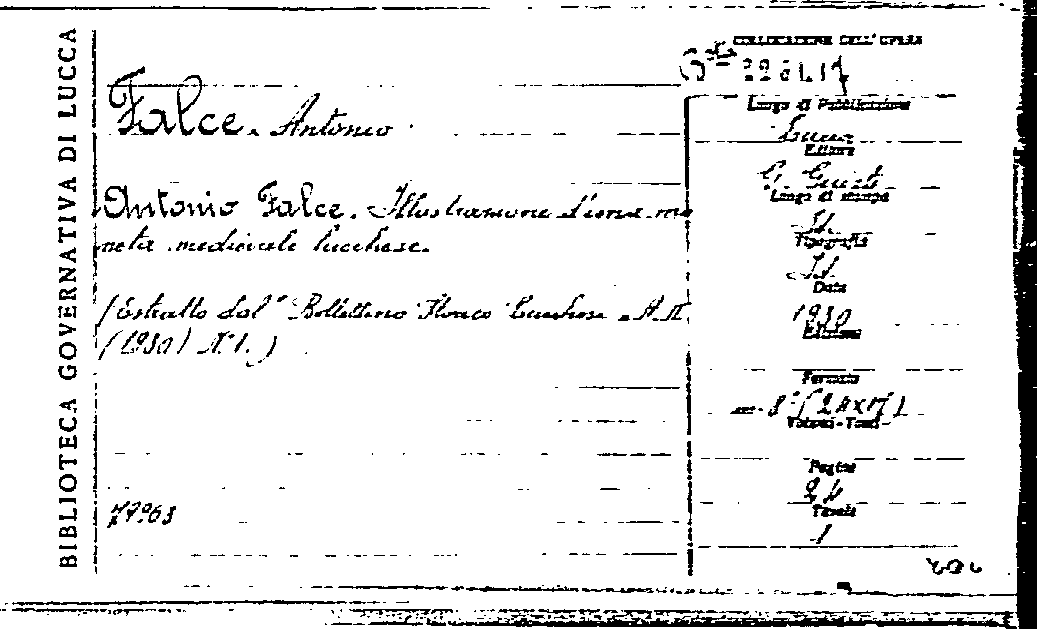 BIBLIOTECA GOVERNATIVA DI LUCCA
COLLOCAZIONE DELL'OPERA
Falce. Antonio
Antonio Falce. Illustrazione d'una mo
neta medievale lucchese.
(Estratto dal "Bollettino Storico Lucchese A. II
(1930) N. 1.)
77963
Luogo di Pubblicazione
Lucca
Editore
G. Giusti
Luogo di stampa
Id.
Tipografia
Id.
Data
1930
Edizione
Formato
in-8° (24x17)
Volumi-Tomi-
Pagine
24
Tavole
1